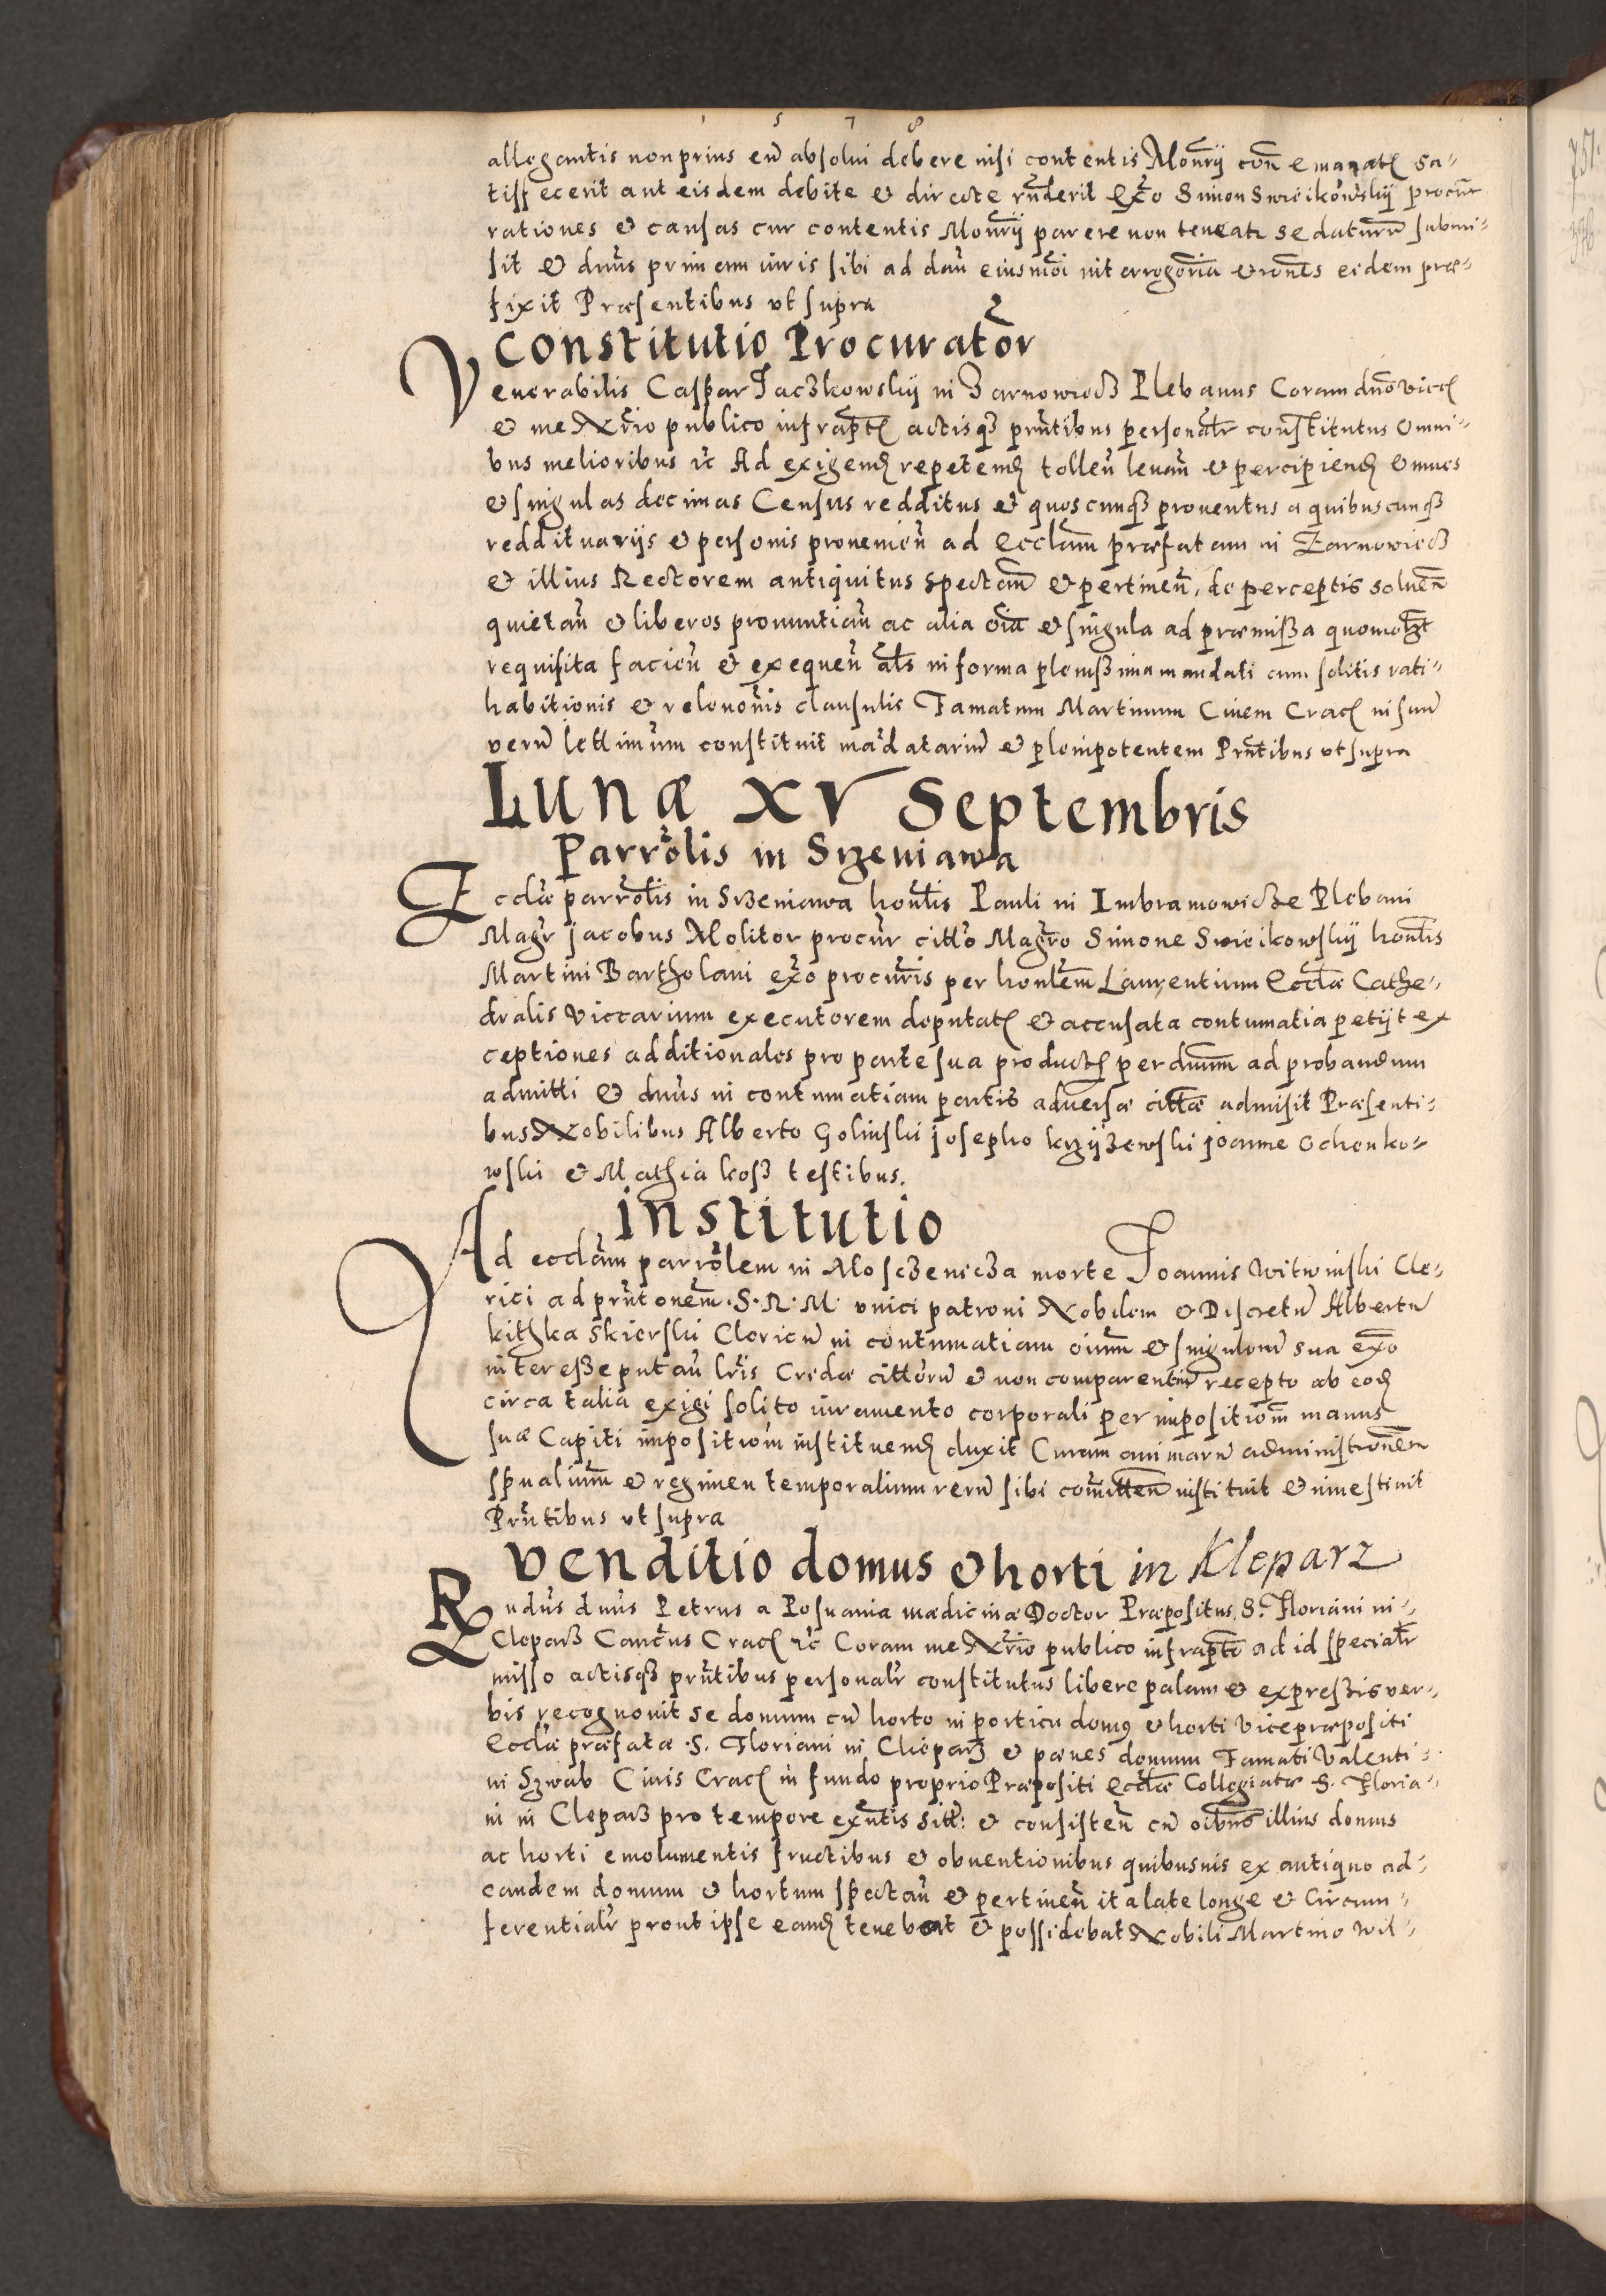 1 5 7 8
allegantis non prius eū absolui debere nisi contentis Monrÿ coñ emanatę sa-
tisfecerit aut eisdem debite et directe rñderit Exo Simon Swieikowskÿ procūr
rationes et causas cur contentis Monrÿ parere non teneatr se daturum submi-
sit et dnus primam iuris sibi ad dañ eiusmōi interrogoria et rōnes eidem præ-
fixit Præsentibus vt supra
Constitutio Procurator
Venerabilis Caspar Jaczkowskÿ in Zarnowiecz Plebanus Coram dnō vicę
et me Nrīo publico infraptę actisqз prñtibus personalr constitutus omni-
bus melioribus rc Ad exigendę repetendę tolleñ leuañ et percipiendę omnes
et singulas decimas Census redditus et quoscunqз prouentus a quibuscunqз
reddituarÿs et personis prouenieñ ad Ecclam præfatam in Zarnowiecz
et illius Rectorem antiquitus spectañ et pertineñ, de perceptis solueñ
quietañ et liberos pronuntiañ ac alia oīa et singula ad præmissa quomolzt
requisita facieñ et exequeñ als in forma plenissima mandati cum solitis rati-
habitionis et releuonis clausulis Famatum Martinum Ciuem Cracę in suū
verū lettimum constituit mādatariū et plenipotentem Prñtibus vt supra
Lunæ XV Septembris
Parrolis in Srzeniawa
Ecclæ parrolis in Srzeniawa honlis Pauli in Imbramowicze Plebani
Magr Jacobus Molitor procūr citto Magro Simone Swieikowskÿ honlis
Martini Bartholani exo procuris per honlem Laurentium Ecclæ Cathe-
dralis Viccarium executorem deputatę et accusata contumatia petÿt ex
ceptiones additionales pro parte sua productę per dnum ad probandum
admitti et dnus in contumatiam partis aduersæ cittæ admisit Præsenti-
bus Nobilibus Alberto Golinski Josepho krzÿzewski Joanne Ochenko-
wski et Mathia kosz testibus.
Institutio
Ad ecclam parrolem in Moszczenicza morte Joannis Witwinski Cle-
rici ad prñtonem S. R. M. vnici patroni Nobilem et Discretū Albertū
kithka skierski Clericū in contumatiam oium et singulorū sua exo
interesse putañ lris Cridæ cittorū et non comparentiū recepto ab eodę
circa talia exigi solito iuramento corporali per impositiom manus
suæ Capiti impositiom instituendę duxit Curam animarū administronem
spualium et regimen temporalium rerū sibi comitteñ instituit et inuestiuit
Prñtibus vt supra
Venditio domus et horti in Kleparz
Rndus dnus Petrus a Posnania mædicinæ Doctor Præpositus S. Floriani in-
Cleparz Cancus Cracę rc Coram me Nrīo publico infrapto ad id specialr
misso actisqз prñtibus personalr constitutus libere palam et expressis ver-
bis recognouit se domum cū horto in porticu domus et horti Vicepræpositi
Ecclæ præfatæ S. Floriani in Cleparz et pænes domum Famati Valenti-
ni Szwab Ciuis Cracę in fundo proprio Præpositi Ecclæ Collegiatæ S. Floria-
ni in Cleparz pro tempore exñtis sitt: et consisteñ cū oibus illius domus
ac horti emolumentis fructibus et obuentionibus quibusuis ex antiquo ad-
eandem domum et hortum spectañ et pertineñ ita late longe et Circum-
ferentialr prout ipse eandę tenebat et possidebat Nobili Martino Wil-